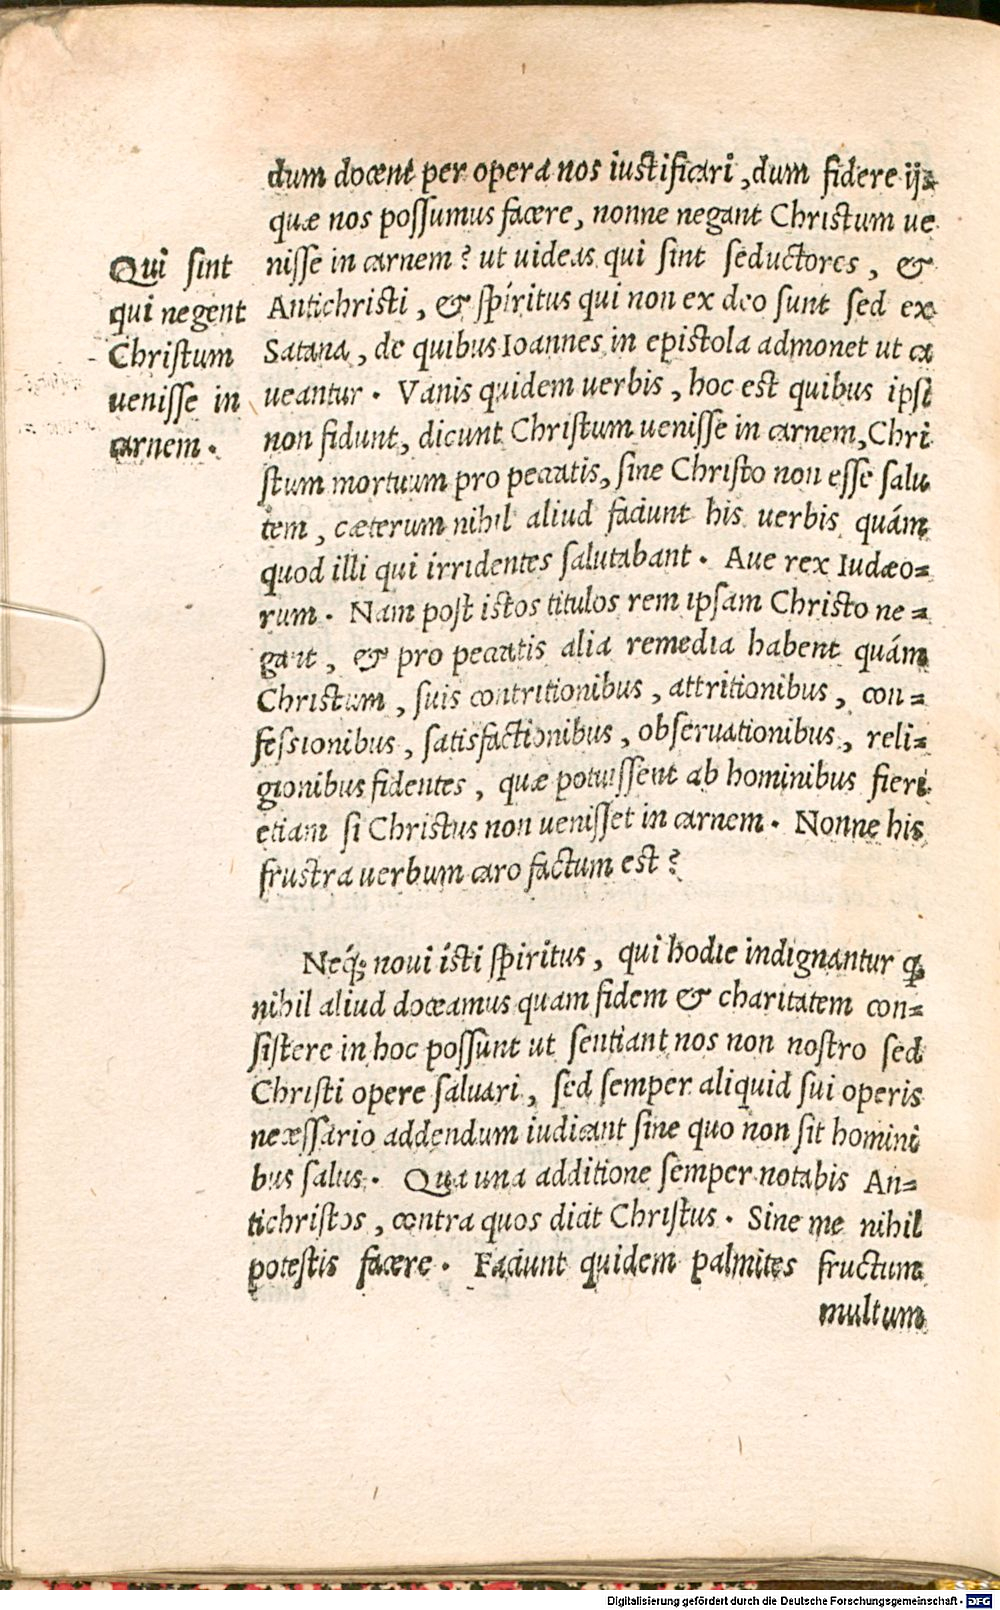 dum docent per opera nos iustificari, dum fidere ijs
quæ nos possumus facere, nonne negant Christum ue
nisse in carnem? ut uideas qui sint seductores, &
Antichristi, & spiritus qui non ex deo sunt sed ex
Satana, de quibus Ioannes in epistola admonet ut ca
ueantur. Vanis quidem uerbis, hoc est quibus ipsi
non fidunt, dicunt Christum uenisse in carnem, Chri
stum mortuum pro peccatis, sine Christo non esse salu
tem, cæterum nihil aliud faciunt his uerbis quám
quod illi qui irridentes salutabant. Aue rex Iudæo=
rum. Nam post istos titulos rem ipsam Christo ne=
gant, & pro peccatis alia remedia habent quám
Christum, suis contritionibus, attritionibus, con=
fessionibus, satisfactionibus, obseruationibus, reli=
gionibus fidentes, quæ potuissent ab hominibus fieri
etiam si Christus non uenisset in carnem. Nonne his
frustra uerbum caro factum est?
Qui sint
qui negent
Christum
uenisse in
carnem.
Neq́; noui isti spiritus, qui hodie indignantur ꝙ
nihil aliud doceamus quam fidem & charitatem con=
sistere in hoc possunt ut sentiant nos non nostro sed
Christi opere saluari, sed semper aliquid sui operis
necessario addendum iudicant sine quo non sit homini
bus salus. Qua una additione semper notabis An=
tichristos, contra quos dicit Christus. Sine me nihil
potestis facere. Faciunt quidem palmites fructum
multum
Digitalisierung gefördert durch die Deutsche Forschungsgemeinschaft - DFG